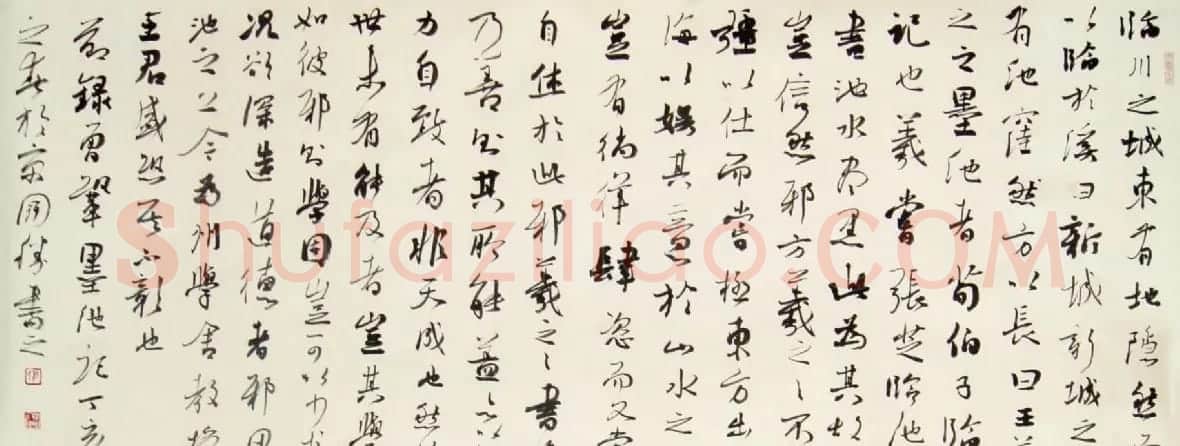 临川之城東有地隐然
以臨於溪曰新城新城之
有池窪然方以長曰王
之之墨池者荀伯子臨
记也羲嘗張芝臨池
書池水尽黑此為其故
豈信然邪方羲之之不
强以仕而嘗极東方出
海以娱其意於山水之
豈有徜徉肆恣而又嘗
自休於此邪羲之之書
乃善则其所能蓋
力自致者非天成也然
世未有能及者豈其學
如彼邪则學固豈可以少
况欲深造道德者邪
池之上今為州學舍教授
王君盛恐其不彰也
節録曾鞏墨池記丁亥
之春於京国 書之
Shufaziliao.COM